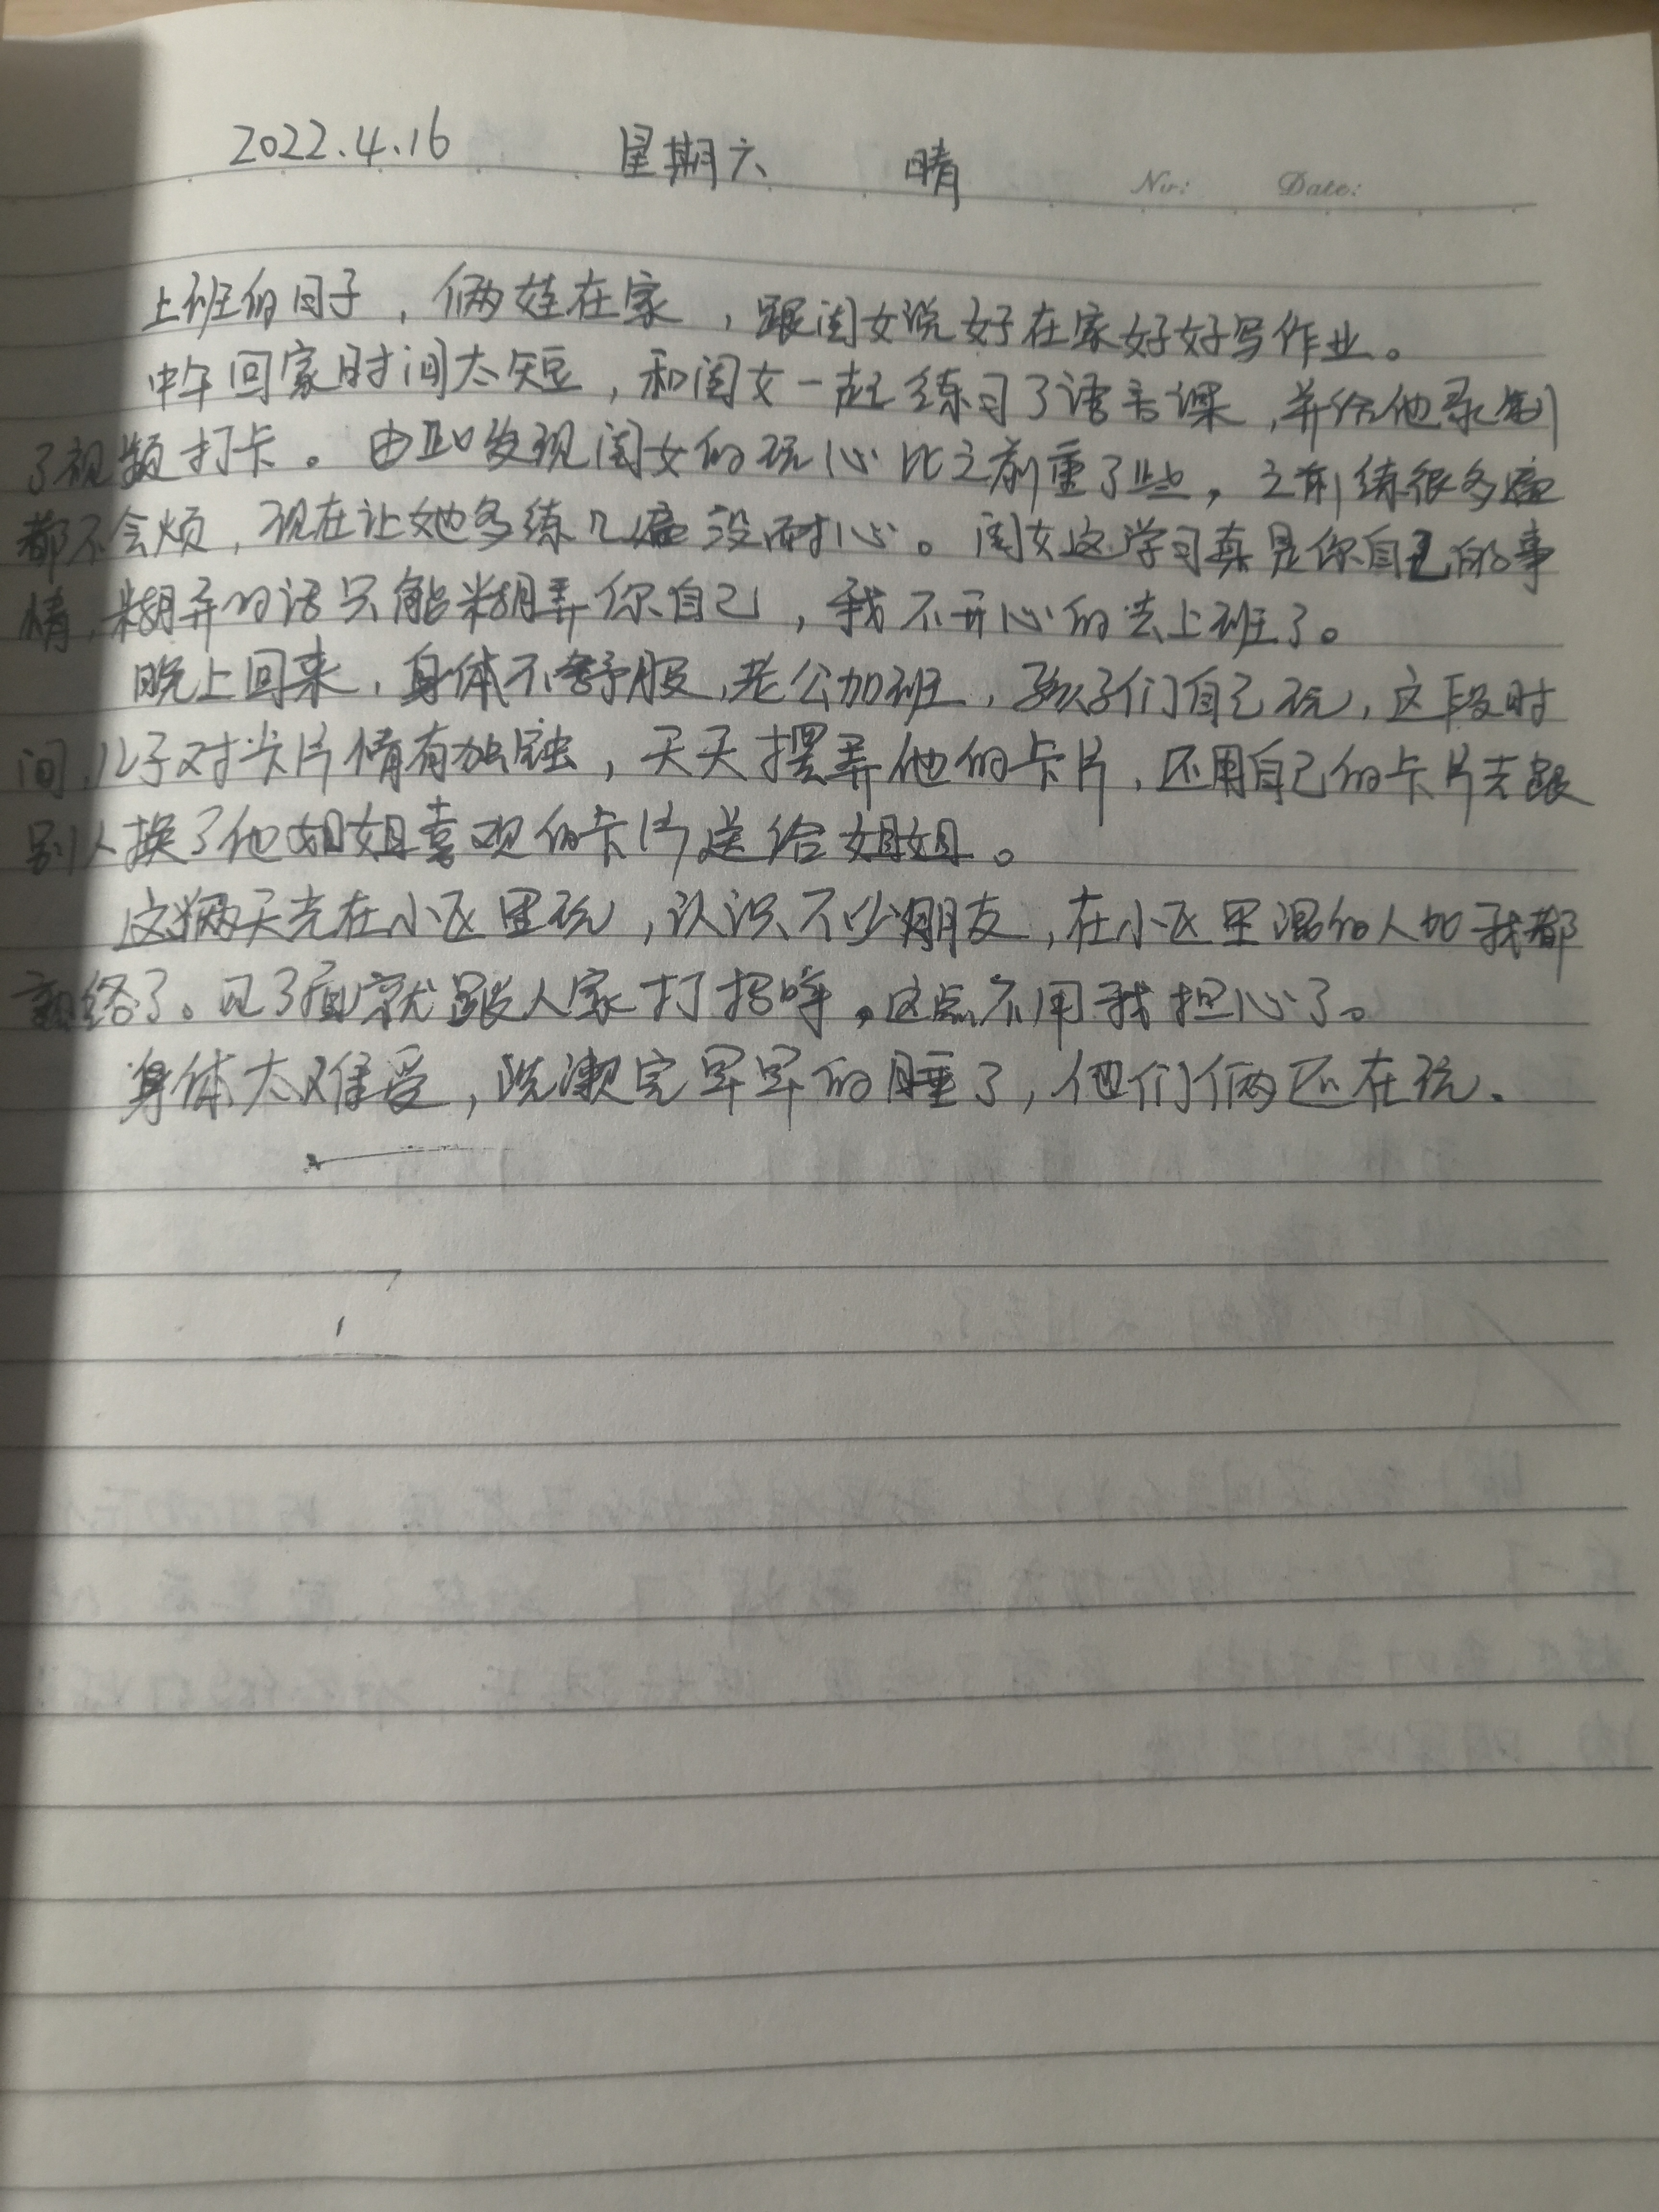 2022.4.16 星期六 晴
No: Date:
上班的日子，俩娃在家，跟闺女说好在家好好写作业。
中午回家时间太短，和闺女一起练习了语言课，并给他录制
了视频打卡。由此发现闺女的玩心比之前重了些，之前练很多遍
都不会烦，现在让她多练几遍没耐心。闺女这学习真是你自己的事
情，糊弄的话只能糊弄你自己，我不开心的去上班了。
晚上回来，身体不舒服，老公加班，孩子们自己玩，这段时
间，儿子对卡片情有独钟，天天摆弄他的卡片，还用自己的卡片去跟
别人换了他姐姐喜欢的卡片送给姐姐。
这俩天光在小区里玩，认识不少朋友，在小区里混的人如我都
熟络了。见了面就跟人家打招呼。这点不用我担心了。
身体太难受，洗漱完早早的睡了，他们俩还在玩。